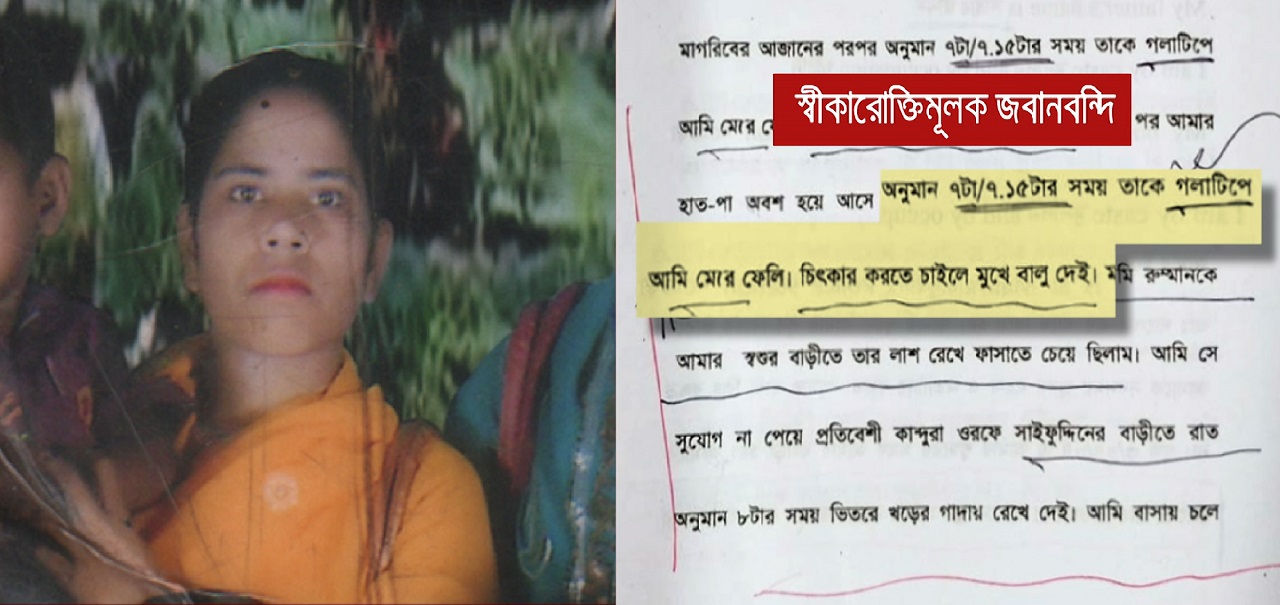 মাগরিবের আজানের পরপর অনুমান ৭টা/৭.১৫টার সময় তাকে গলাটিপে
স্বীকারোক্তিমূলক জবানবন্দি
আমি মেরে পর আমার
হাত-পা অবশ হয়ে আসে অনুমান ৭টা/৭.১৫টার সময় তাকে গলাটিপে
আমি মেরে ফেলি। চিৎকার করতে চাইলে মুখে বালু দেই। মমি রুম্মানকে
আমার স্বশুর বাড়ীতে তার লাশ রেখে ফাসাতে চেয়ে ছিলাম। আমি সে
সুযোগ না পেয়ে প্রতিবেশী কান্দুরা ওরফে সাইফুদ্দিনের বাড়ীতে রাত
অনুমান ৮টার সময় ভিতরে খড়ের গাদায় রেখে দেই। আমি বাসায় চলে